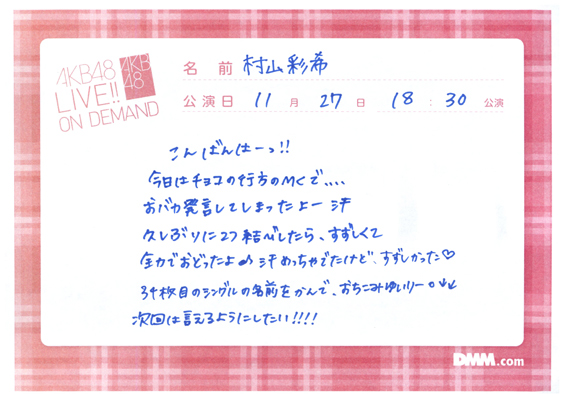 AKB48
LIVE!!
ON DEMAND
AKB
48
名 前 村山彩希
公演日 11 月 27 日 18 : 30 公演
こんばんはーっ!!
今日はチョコの行方のMCで、、、、
おバカ発言してしまったよー汗
久しぶりに2つ結びしたら、すずしくて
全力でおどったよ♪汗めっちゃでたけど、すずしかった♡
34枚目のシングルの名前をかんで、おちこみゆいりー。↓↓
次回は言えるようにしたい!!!!
DMM.com